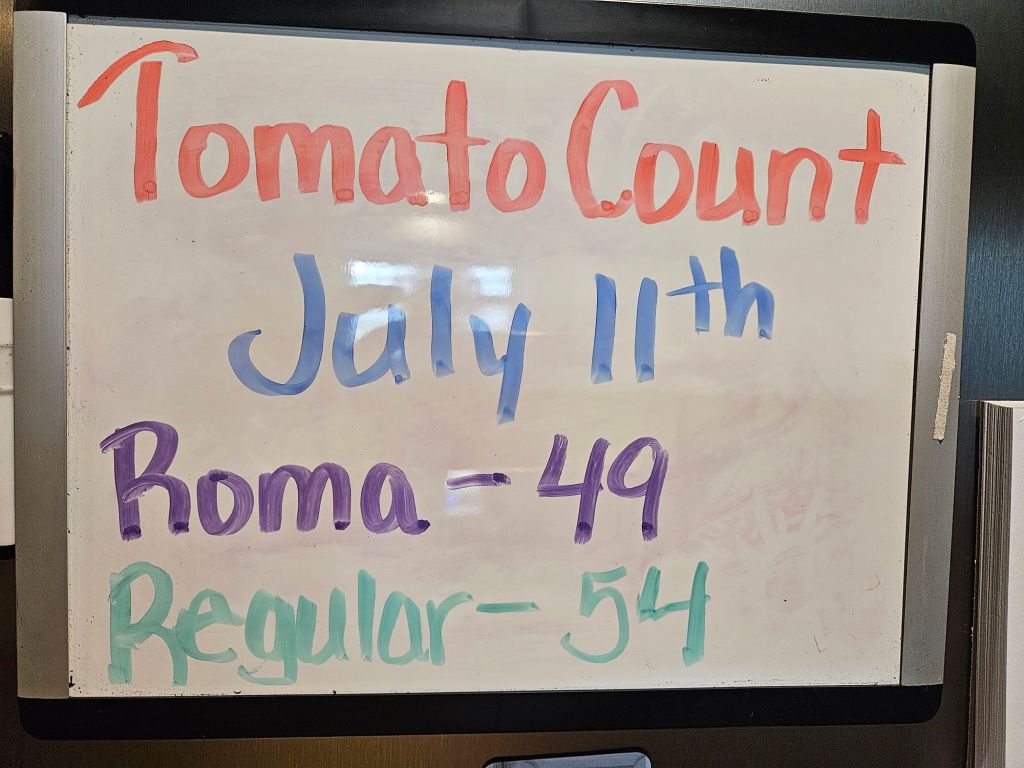 Tomato Count
July 11th
Roma - 49
Regular - 54